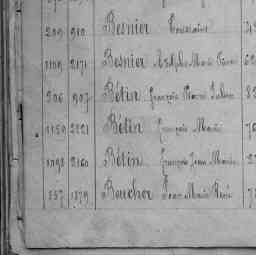 209 910 Besnier Toussaint
1109 2171 Besnier Marie
206 907 Bétin François Pierre Julien
1159 2221 Bétin François Marie
1098 2160 Bétin François Jean Marie
857 1879 Boucher Jean Marie René